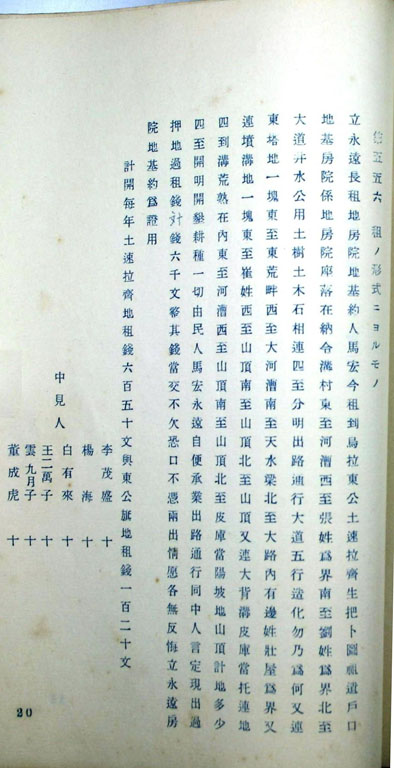 五五六 租ノ形式ニヨルモノ
立永遠長租地房院地基約人馬宏今租到烏拉東公土速拉齊生把卜圖祖遺戶口
地基房院係地房院座落在納令溝村東至河漕西至張姓爲界南至劉姓爲界北至
大道井水公用土樹土木石相連四至分明出路通行大道五行造化勿乃爲何又連
東塔地一塊東至東荒畔西至大河漕南至天水梁北至大路內有邊姓壯屋爲界又
連墳溝地一塊東至崔姓西至山頂南至山頂北至山頂又連大背溝皮庫當托連地
四到溝荒熟在內東至河漕西至山頂南至山頂北至皮庫當陽坡地山頂計地多少
四至開明開墾耕種一切由民人馬宏永遠自便承業出路通行同中人言定現出過
押地過租錢計錢六千文整其錢當交不欠恐口不憑兩出情愿各無反悔立永遠房
院地基約爲證用
計開每年土速拉齊地租錢六百五十文與東公旗地租錢一百二十文
李茂盛 十
楊海 十
中見人 白有來 十
王二萬子 十
雲九月子 十
董成虎 十
20